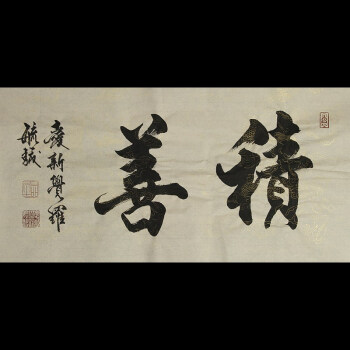 積善
愛新覺羅
毓鋮